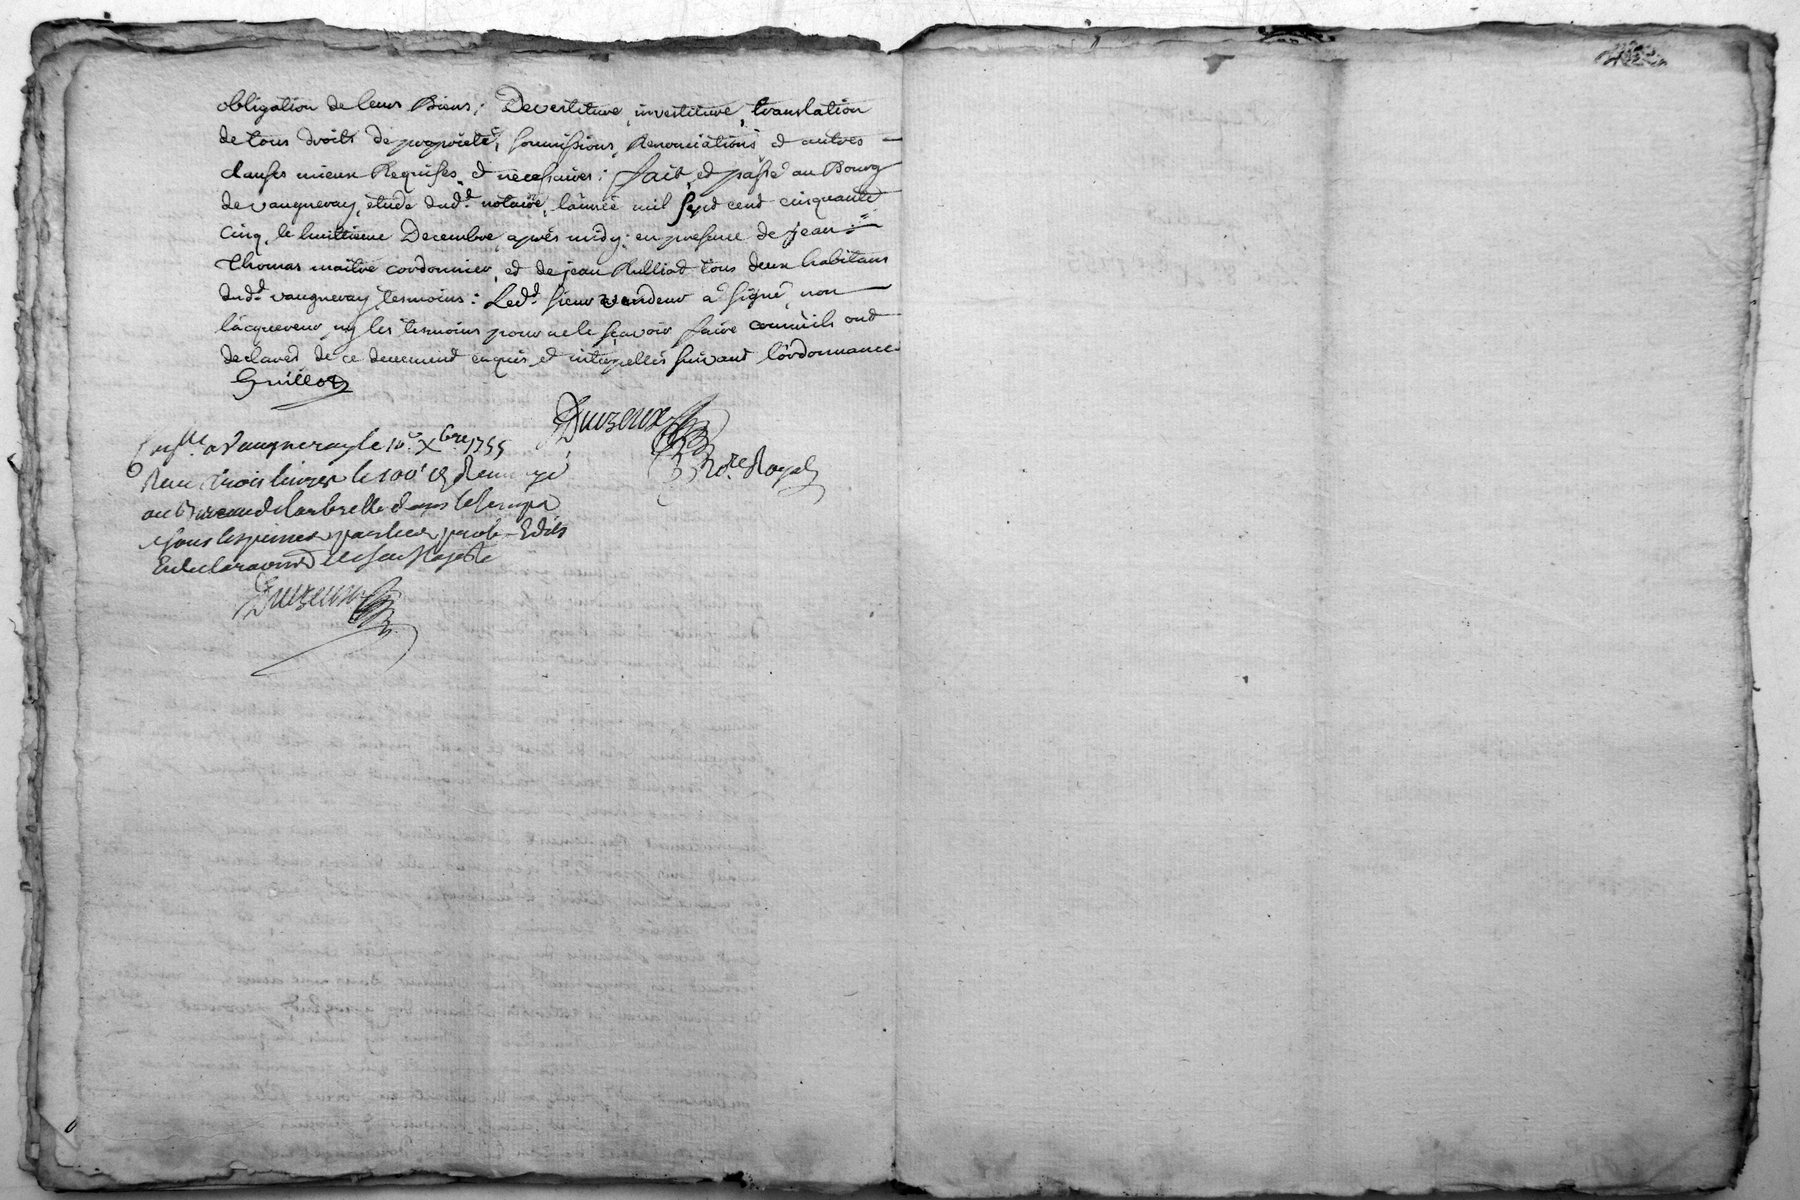 obligation de leurs Biens; Devestiture, investiture, translation
de tous droits de proprieté, soumissions, Renonciations et autres
clauses mieux Requises et necessaires: fait et passé au Bourg
de vaugneray, etude dud.t notaire, l'année mil sept cent cinquante
cinq, le huitieme Decembre, après midy; en presence de jean
Thomas maitre cordonnier, et de jean Rulliat tous deux habitans
dud.t vaugneray, tesmoins: Led.t sieur vendeur a signé, non
l'acquereur ny les tesmoins pour ne le sçavoir faire comm'ils ont
declaré de ce deuement enquis et interpellés suivant l'ordonnance
Guillot
Duizeux
N.re Royal
a Vaugneray le 10.e Xbre 1755
Receu trois livres
au Bureau de larbrelle dans le temps
sous les peines portées par les Edits
Et declarations de Sa Majesté
Duizeux